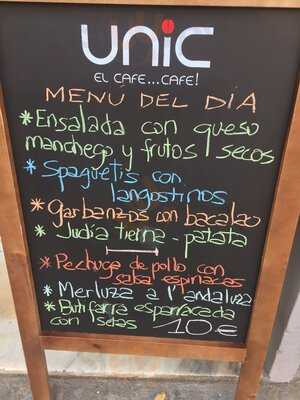 unic
EL CAFE...CAFE!
MENÚ DEL DÍA
*Ensalada con queso
manchego y frutos secos
*Spaguetis con
langostinos
*Garbanzos con bacalao
*Judía tierna - patata
*Pechuga de pollo con
salsa espinacas
*Merluza a l'andaluza
*Butifarra esparracada
con setas 10€